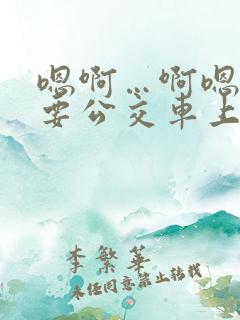 嗯啊…啊嗯
要公交车上
李繁华
未经同意禁止转载